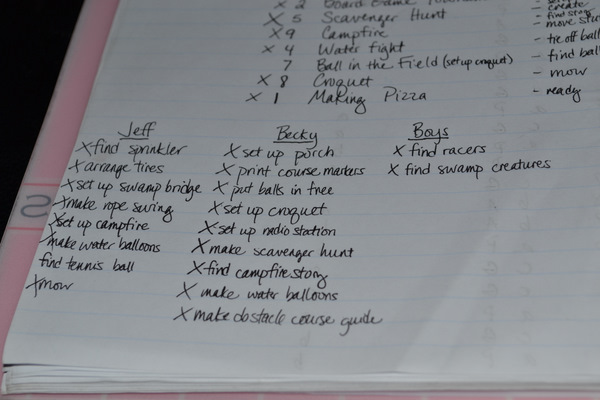 X 2 Board Game Tournament
X 5 Scavenger Hunt
X 9 Campfire
X 4 Water fight
7 Ball in the Field (set up croquet)
X 8 Croquet
X 1 Making Pizza
- create
- find story
- move
- tie off ball
- find ball
- mow
- ready
Jeff
X find sprinkler
X arrange tires
X set up swamp bridge
X make rope swing
X set up campfire
X make water balloons
find tennis ball
X mow
Becky
X set up porch
X print course markers
X put balls in tree
X set up croquet
X set up radio station
X make scavenger hunt
X find campfire story
X make water balloons
X make obstacle course guide
Boys
X find racers
X find swamp creatures
S